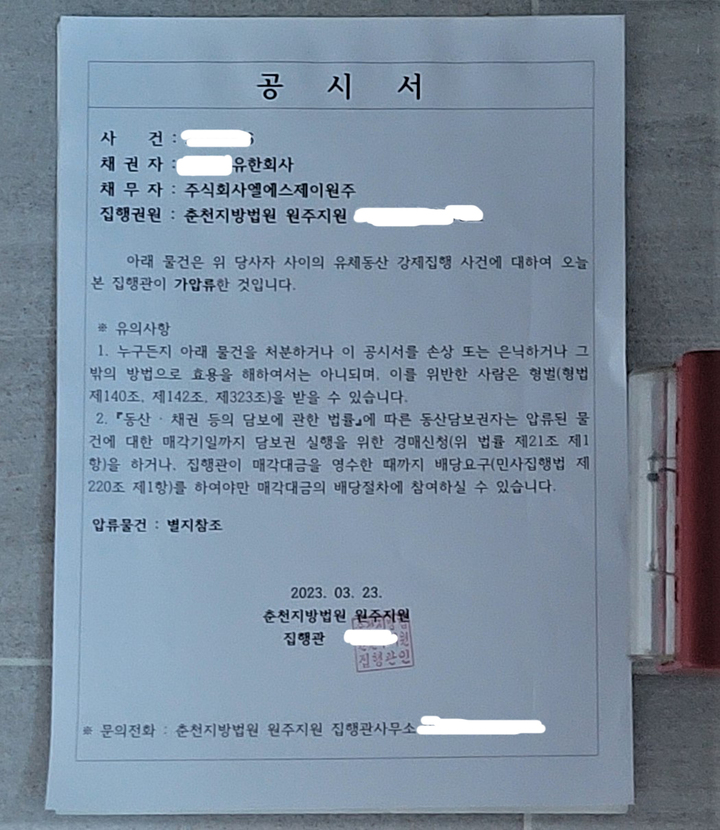 공 시 서
사 건 :
채 권 자 : 유한회사
채 무 자 : 주식회사엘에스제이원주
집행권원 : 춘천지방법원 원주지원
아래 물건은 위 당사자 사이의 유체동산 강제집행 사건에 대하여 오늘
본 집행관이 가압류한 것입니다.
※ 유의사항
1. 누구든지 아래 물건을 처분하거나 이 공시서를 손상 또는 은닉하거나 그
밖의 방법으로 효용을 해하여서는 아니되며, 이를 위반한 사람은 형벌(형법
제140조, 제142조, 제323조)을 받을 수 있습니다.
2. 『동산 · 채권 등의 담보에 관한 법률』에 따른 동산담보권자는 압류된 물
건에 대한 매각기일까지 담보권 실행을 위한 경매신청(위 법률 제21조 제1
항)을 하거나, 집행관이 매각대금을 영수한 때까지 배당요구(민사집행법 제
220조 제1항)를 하여야만 매각대금의 배당절차에 참여하실 수 있습니다.
압류물건 : 별지참조
2023. 03. 23.
춘천지방법원 원주지원
집행관
집행관인
※ 문의전화 : 춘천지방법원 원주지원 집행관사무소